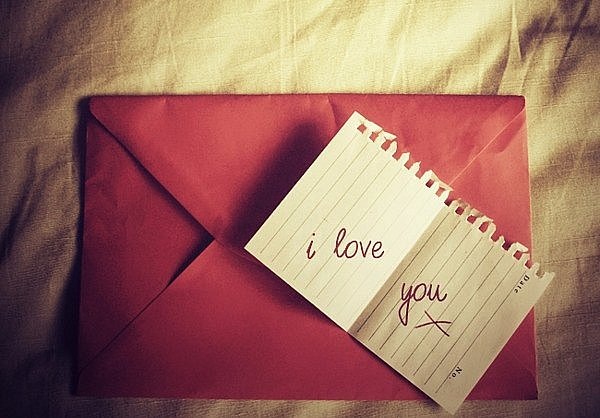 i love
you
x
Date
No.